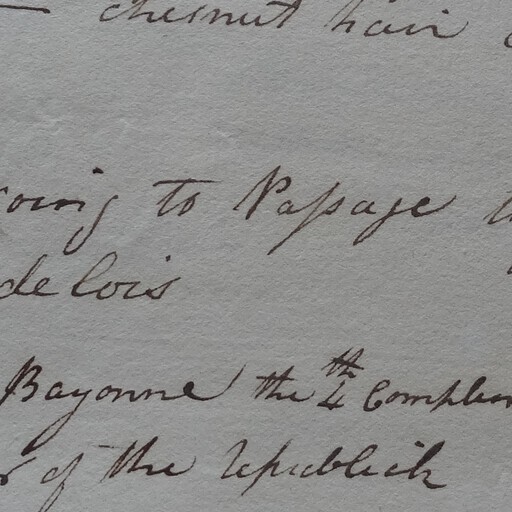 chesnut hair
going to Passage
de lois
Bayonne the 4th Complem
of the republick